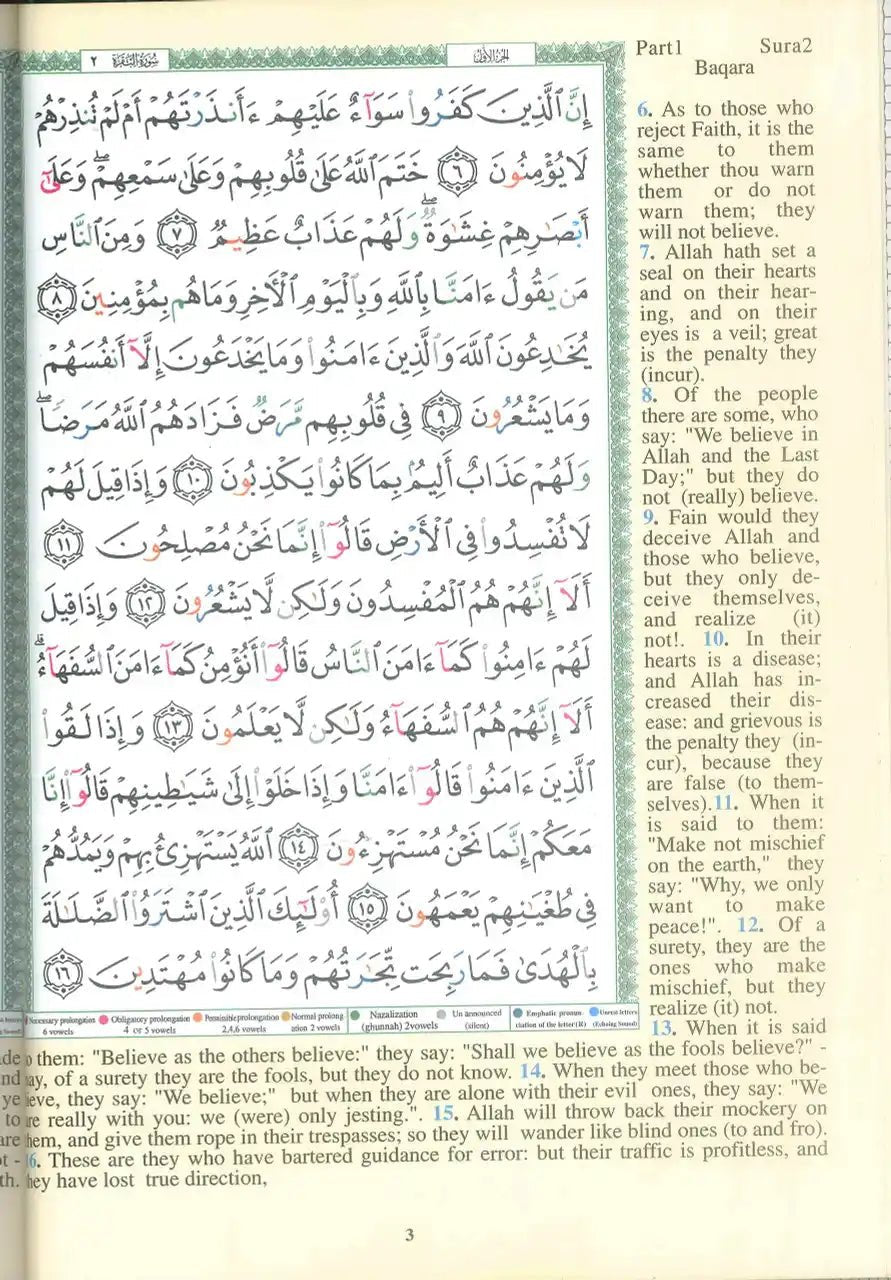 Part1 Sura2
Baqara
سُورَةُ البَقَرَة ٢
الجزء الأول
إِنَّ ٱلَّذِينَ كَفَرُوا۟ سَوَآءٌ عَلَيْهِمْ ءَأَنذَرْتَهُمْ أَمْ لَمْ تُنذِرْهُمْ
لَا يُؤْمِنُونَ ٦ خَتَمَ ٱللَّهُ عَلَىٰ قُلُوبِهِمْ وَعَلَىٰ سَمْعِهِمْ ۖ وَعَلَىٰٓ
أَبْصَـٰرِهِمْ غِشَـٰوَةٌ ۖ وَلَهُمْ عَذَابٌ عَظِيمٌ ٧ وَمِنَ ٱلنَّاسِ
مَن يَقُولُ ءَامَنَّا بِٱللَّهِ وَبِٱلْيَوْمِ ٱلْـَٔاخِرِ وَمَا هُم بِمُؤْمِنِينَ ٨
يُخَـٰدِعُونَ ٱللَّهَ وَٱلَّذِينَ ءَامَنُوا۟ وَمَا يَخْدَعُونَ إِلَّآ أَنفُسَهُمْ
وَمَا يَشْعُرُونَ ٩ فِى قُلُوبِهِم مَّرَضٌ فَزَادَهُمُ ٱللَّهُ مَرَضًا ۖ
وَلَهُمْ عَذَابٌ أَلِيمٌۢ بِمَا كَانُوا۟ يَكْذِبُونَ ١٠ وَإِذَا قِيلَ لَهُمْ
لَا تُفْسِدُوا۟ فِى ٱلْأَرْضِ قَالُوٓا۟ إِنَّمَا نَحْنُ مُصْلِحُونَ ١١
أَلَآ إِنَّهُمْ هُمُ ٱلْمُفْسِدُونَ وَلَـٰكِن لَّا يَشْعُرُونَ ١٢ وَإِذَا قِيلَ
لَهُمْ ءَامِنُوا۟ كَمَآ ءَامَنَ ٱلنَّاسُ قَالُوٓا۟ أَنُؤْمِنُ كَمَآ ءَامَنَ ٱلسُّفَهَآءُ ۗ
أَلَآ إِنَّهُمْ هُمُ ٱلسُّفَهَآءُ وَلَـٰكِن لَّا يَعْلَمُونَ ١٣ وَإِذَا لَقُوا۟
ٱلَّذِينَ ءَامَنُوا۟ قَالُوٓا۟ ءَامَنَّا وَإِذَا خَلَوْا۟ إِلَىٰ شَيَـٰطِينِهِمْ قَالُوٓا۟ إِنَّا
مَعَكُمْ إِنَّمَا نَحْنُ مُسْتَهْزِءُونَ ١٤ ٱللَّهُ يَسْتَهْزِئُ بِهِمْ وَيَمُدُّهُمْ
فِى طُغْيَـٰنِهِمْ يَعْمَهُونَ ١٥ أُو۟لَـٰٓئِكَ ٱلَّذِينَ ٱشْتَرَوُا۟ ٱلضَّلَـٰلَةَ
بِٱلْهُدَىٰ فَمَا رَبِحَت تِّجَـٰرَتُهُمْ وَمَا كَانُوا۟ مُهْتَدِينَ ١٦
Necessary prolongation 6 vowels
Obligatory prolongation 4 or 5 vowels
Permissible prolongation 2,4,6 vowels
Normal prolongation 2 vowels
Nazalization (ghunnah) 2vowels
Un announced (silent)
Emphatic pronunciation of the letter(R)
Unrest letters (Echoing Sound)
6. As to those who
reject Faith, it is the
same to them
whether thou warn
them or do not
warn them; they
will not believe.
7. Allah hath set a
seal on their hearts
and on their hear-
ing, and on their
eyes is a veil; great
is the penalty they
(incur).
8. Of the people
there are some, who
say: "We believe in
Allah and the Last
Day;" but they do
not (really) believe.
9. Fain would they
deceive Allah and
those who believe,
but they only de-
ceive themselves,
and realize (it)
not!. 10. In their
hearts is a disease;
and Allah has in-
creased their dis-
ease: and grievous is
the penalty they (in-
cur), because they
are false (to them-
selves).11. When it
is said to them:
"Make not mischief
on the earth," they
say: "Why, we only
want to make
peace!". 12. Of a
surety, they are the
ones who make
mischief, but they
realize (it) not.
13. When it is said
o them: "Believe as the others believe:" they say: "Shall we believe as the fools believe?" -
ay, of a surety they are the fools, but they do not know. 14. When they meet those who be-
ieve, they say: "We believe;" but when they are alone with their evil ones, they say: "We
re really with you: we (were) only jesting.". 15. Allah will throw back their mockery on
hem, and give them rope in their trespasses; so they will wander like blind ones (to and fro).
6. These are they who have bartered guidance for error: but their traffic is profitless, and
hey have lost true direction,
3